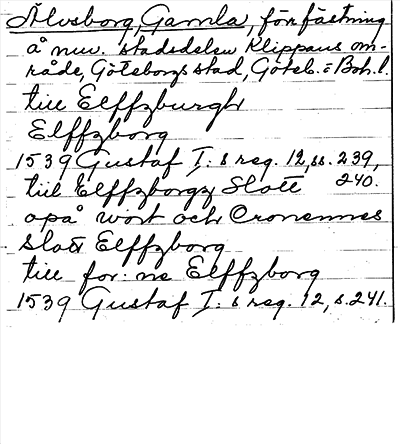 Älvsborg, Gamla, förr fästning
å nuv. stadsdelen Klippans om-
råde, Göteborgs stad, Göteb. o Boh. l.
till Elffzburgh
Elffzborg
1539 Gustaf I:s reg. 12, ss. 239,
till Elffzborgz Slott 240.
opå wort och Cronennes
slott Elffzborg
till for:ne Elffzborg
1539 Gustaf I:s reg. 12, s. 241.